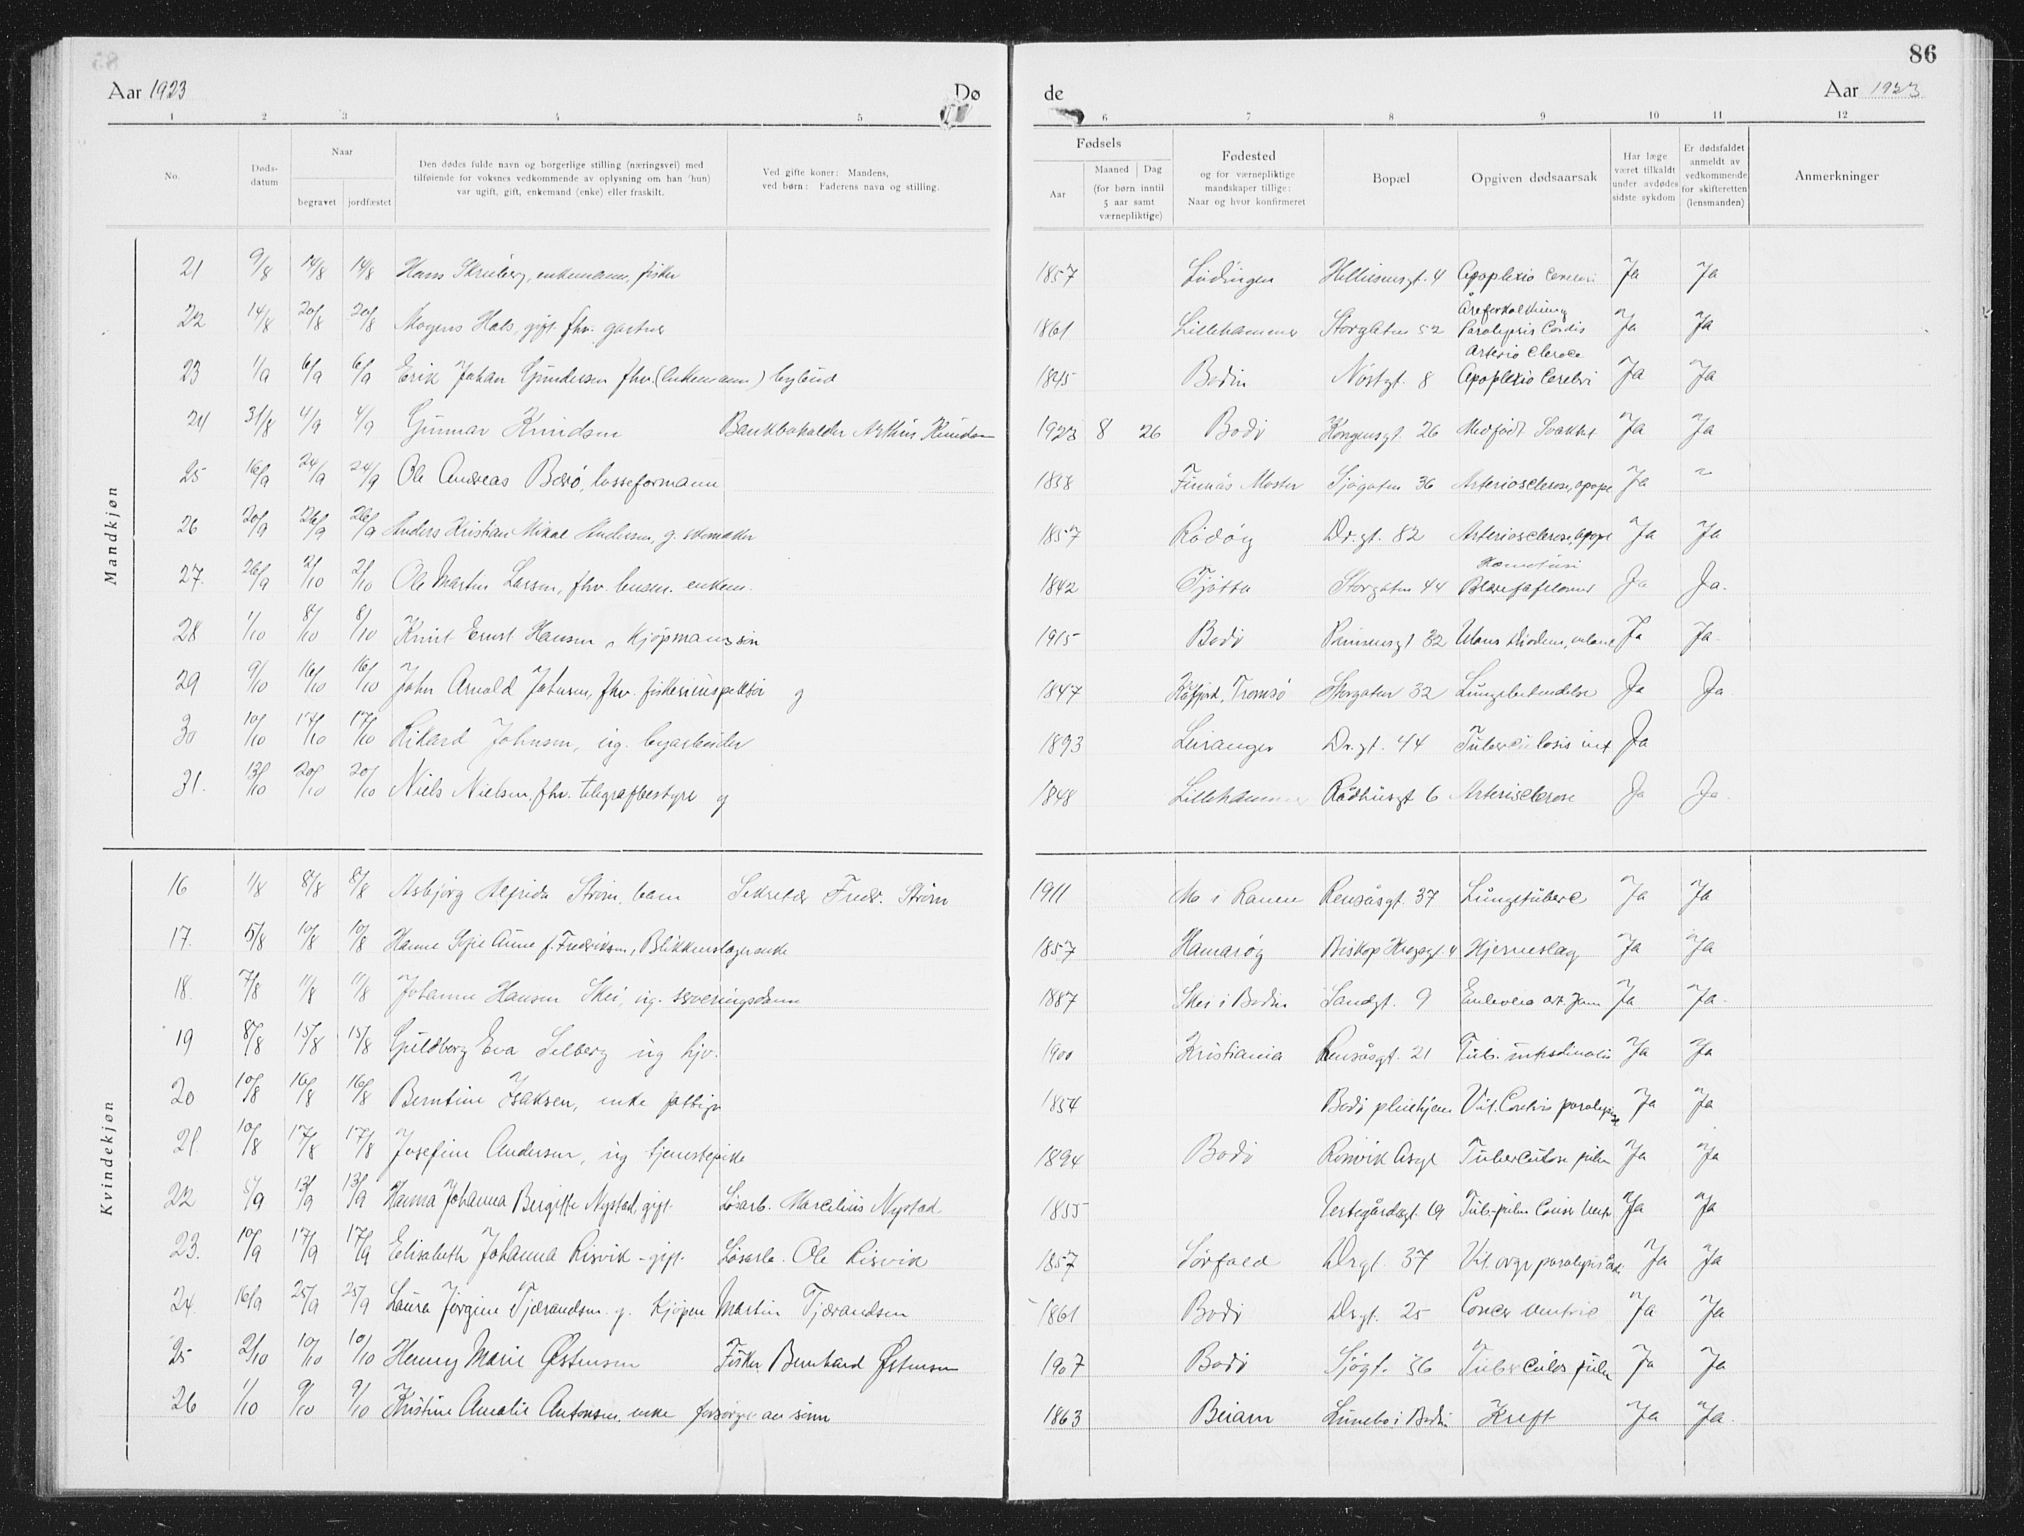 86
Aar 1923 Dø de Aar 1923
1 2 3 4 5 6 7 8 9 10 11 12
No.
Døds-datum
Naar
begravet jordfæstet
Den dødes fulde navn og borgerlige stilling (næringsvei) med
tilføiende for voksnes vedkommende av oplysning om han (hun)
var ugift, gift, enkemand (enke) eller fraskilt.
Ved gifte koner: Mandens,
ved børn: Faderens navn og stilling.
Fødsels
Aar
Maaned Dag
(for børn inntil
5 aar samt
værnepliktige)
Fødested
og for værnepliktige
mandskaper tillige:
Naar og hvor konfirmeret
Bopæl
Opgiven dødsaarsak
Har læge
været tilkaldt
under avdødes
sidste sykdom
Er dødsfaldet
anmeldt av
vedkommende
for skifteretten
(lensmanden)
Anmerkninger
Mandkjøn
21 9/8 14/8 14/8 Hans enkemann, fisker 1857 Lødingen 4 Apoplexia Cerebri Ja Ja
22 14/8 20/8 20/8 Mogens Hals, gift fhv. gartner 1861 Lillehammer Storgaten 52 Åreforkalkning Paralysis Cordis Ja Ja
23 1/9 6/9 6/9 Erik Johan Gundersen fhv. (enkemann) bybud 1845 Bodin Nøstgt. 8 Apoplexia Cerebri Ja Ja
24 31/8 4/9 4/9 Gunnar Knudsen Bankbokholder Arthur Knudsen 1923 8 26 Bodø Kongensgt. 26 Medfødt Svakhet Ja Ja
25 16/9 24/9 24/9 Ole Andreas losseformann 1858 Finnås Moster Sjøgaten 36 Arteriosclerose, apopl Ja
26 20/9 26/9 26/9 Anders Kristian Mikal Andersen, g. skomaker 1857 Rødøy Dr.gt. 82 Arteriosclerose, apopl Ja Ja
27. 26/9 2/10 2/10 Ole Martin Larsen, fhv. husm. enkem. 1842 Tjøtta Storgaten 44 Ja Ja.
28 1/10 8/10 8/10 Knut Ernst Hansen, kjøpmannssøn 1915 Bodø 32 Ulcus duodeni, Ja Ja
29 9/10 16/10 16/10 John Arnold Johnsen, fhv. fiskeriinspektør g 1847 Kåfjord, Tromsø Storgaten 32 Lungebetendelse Ja Ja
30 10/10 17/10 17/10 Rikard Johnsen, ug. byarbeider 1893 Leiranger Dr.gt. 44 Tuberculosis int Ja
31. 13/10 20/10 20/10 Niels Nielsen, fhv. telegrafbestyrer g 1848 Lillehammer Rådhusgt 6 Arterisclerose Ja Ja
Kvindekjøn
16 1/8 8/8 8/8 Asbjørg Alfrida Strøm, barn Sekretær Fredr. Strøm 1911 Mo i Ranen Rensåsgt. 37 Lungetuberc Ja Ja
17. 5/8 10/8 10/8 Hanne Sofie Aune f. Fredriksen, Blikkenslagerenke 1857 Hamarøy Biskop Krogsgt. 4 Hjerneslag Ja Ja
18. 7/8 11/8 11/8 Johanne Hansen Skei, ug. serveringsdame 1887 Skei i Bodin Sandgt. 9 Embolia art. Ja Ja
19 8/8 15/8 15/8 Guldborg Eva Selberg ug hjv. 1900 Kristiania Rensåsgt. 21 Tub. intestinalis Ja Ja
20 10/8 16/8 16/8 Berntine Isaksen, enke fattigv 1854 Bodø pleiehjem Vit. Cordis paralysis Ja Ja
21. 10/8 17/8 17/8 Josefine Andersen, ug tjenestepike 1894 Bodø Rønvik Asyl Tuberculose pulm Ja Ja
22 5/9 13/9 13/9 Hanna Johanna Bergitte Nystad, gift. Løsarb. Marcelius Nystad 1855 19 Tub. pulm Cancer Ventr Ja Ja
23. 10/9 17/9 17/9 Elisabeth Johanna Risvik - gift. Løsarb. Ole Risvik 1857 Sørfold Drgt. 37 Vit. orgr paralysis Cord. Ja Ja
24. 16/9 25/9 25/9 Laura Jørgine Tjærandsen g. Kjøpm Martin Tjærandsen 1861 Bodø Drgt. 25 Cancer Ventric Ja Ja
25 2/10 10/10 10/10 Henny Marie Østensen Fisker Bernhard Østensen 1907 Bodø Sjøgt. 36 Tubercülos pulm Ja Ja
26 1/10 9/10 9/10 Kristine Amalie Antonsen, enke forsørges av sønn 1863 Beiarn i Bodin Kreft Ja Ja.